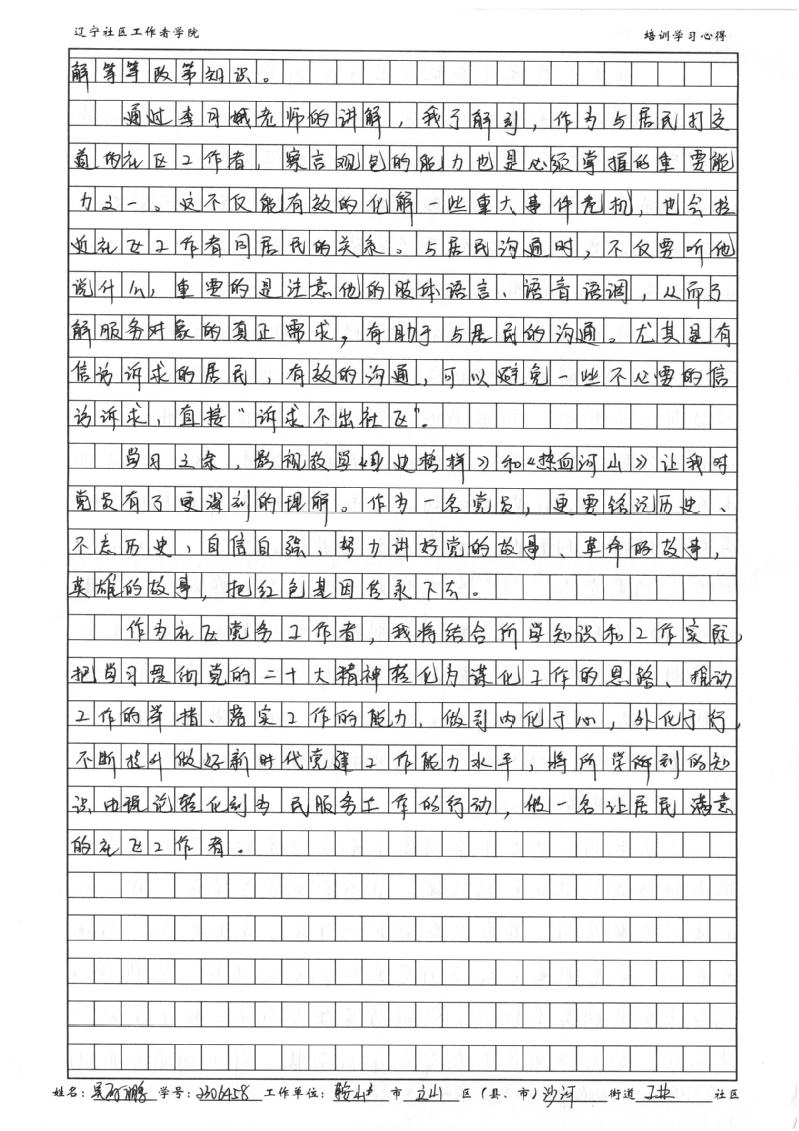 辽宁社区工作者学院 培训学习心得
解等等政策知识。
通过李月娥老师的讲解，我了解到，作为与居民打交
道的社区工作者，察言观色的能力也是必须掌握的重要能
力之一。这不仅能有效的化解一些重大事件危机，也会拉
近社区工作者同居民的关系。与居民沟通时，不仅要听他
说什么，重要的是注意他的肢体语言、语音语调，从而了
解服务对象的真正需求，有助于与居民的沟通。尤其是有
信访诉求的居民，有效的沟通，可以避免一些不必要的信
访诉求，直接“诉求不出社区”。
学习之余，影视教学《榜样》和《热血河山》让我对
党员有了更深刻的理解。作为一名党员，更要铭记历史、
不忘历史，自信自强、努力讲好党的故事、革命的故事，
英雄的故事，把红色基因传承下去。
作为社区党务工作者，我将结合所学知识和工作实际，
把学习贯彻党的二十大精神转化为谋化工作的思路、推动
工作的举措、落实工作的能力，做到内化于心，外化于行，
不断提升做好新时代党建工作能力水平，将所学到的知
识由理论转化到为民服务工作的行动，做一名让居民满意
的社区工作者。
姓名：吴 鹏 学号：2306458 工作单位：鞍山 市 立山 区（县、市）沙河 街道 工业 社区